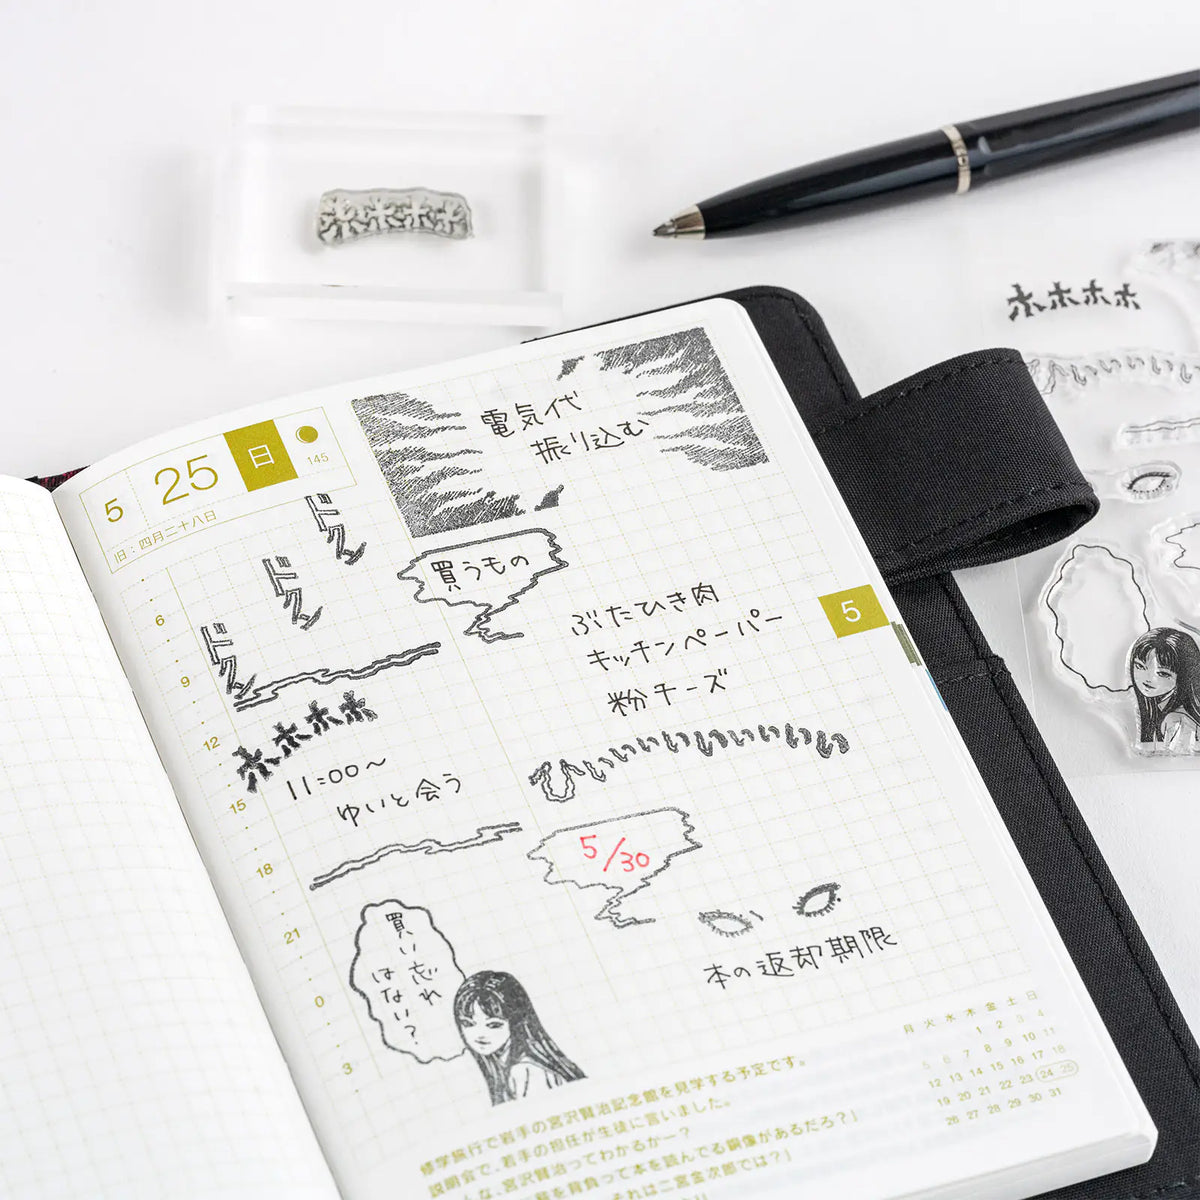 5 25 日
145
旧：四月二十八日
6
9
12
15
18
21
0
3
ドクン
ドクン
ドクン
ホホホホ
11:00〜
ゆいと会う
買い忘れ
はない？
電気代
振り込む
買うもの
ぶたひき肉
キッチンペーパー
粉チーズ
ひぃぃぃぃぃぃぃぃぃ
5/30
本の返却期限
5
月 火 水 木 金 土 日
1 2 3 4
5 6 7 8 9 10 11
12 13 14 15 16 17 18
19 20 21 22 23 24 25
26 27 28 29 30 31
修学旅行で岩手の宮沢賢治記念館を見学する予定です。
説明会で、岩手の担任が生徒に言いました。
宮沢賢治ってわかるかー？
背負って本を読んでる銅像があるだろ？」
それは二宮金次郎では？」
ホホホホ